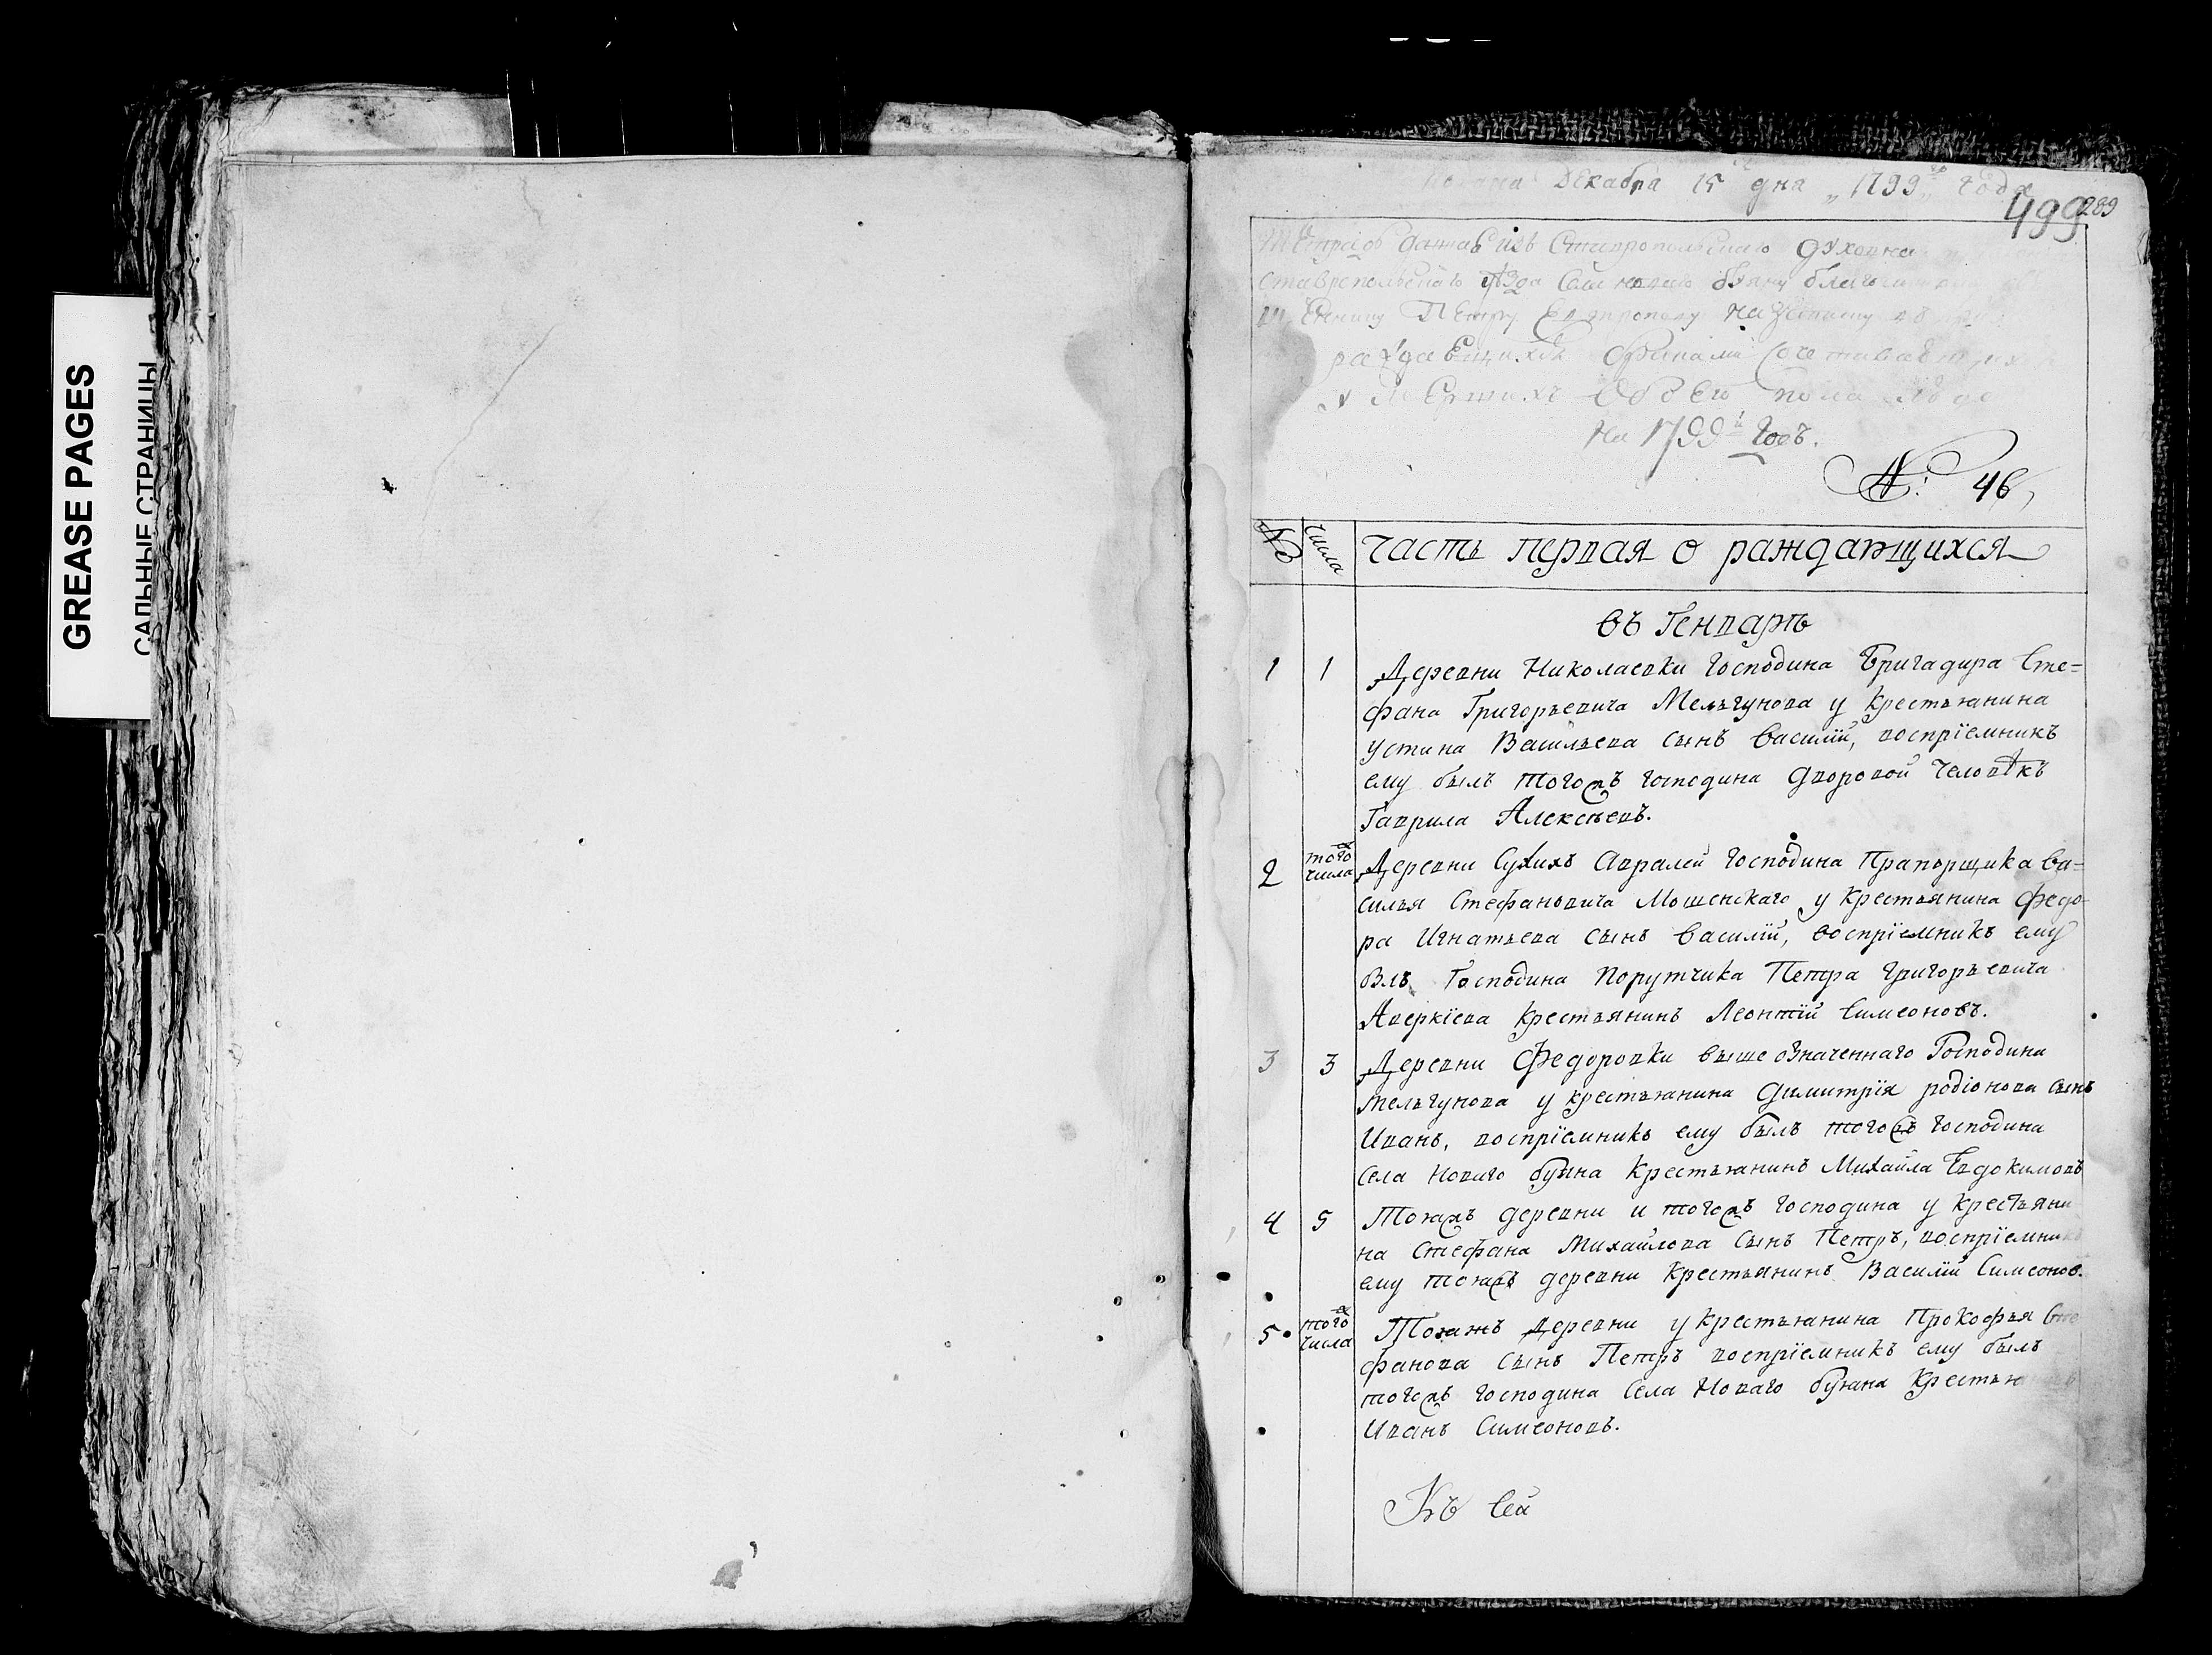 GREASE PAGES
САЛЬНЫЕ СТРАНИЦЫ
Декабря 15 дня 1799 года
499 289
Ставропольскаго духовна
Ставропольскаго
Петру на
раждающихся браками сочетавающихся
и обоего пола
на 1799й годъ.
№: 46,
№ числа Часть первая о раждающихся
въ Генваръ
1 1 Деревни Николаевки Господина Бригадира Сте=
фана Григорьевича Мельгунова у крестьянина
Устина Васильева сынъ Василій, воспріемникъ
ему былъ тогожъ господина дворовой человѣкъ
Гаврила Алексѣевъ.
2 того числа Деревни Сухихъ Авралей Господина Прапорщика Ва=
силья Стефановича Мошенскаго у крестьянина Федо-
ра Игнатьева сынъ Василій, воспріемникъ ему
былъ Господина Порутчика Петра Григорьевича
Аверкіева крестьянинъ Леонтій Симеоновъ.
3 3 Деревни Федоровки выше означеннаго Господина
Мельгунова у крестьянина Димитрія родіонова сынъ
Иванъ, воспріемникъ ему былъ тогожъ господина
села Новаго буяна крестьянинъ Михайла Евдокимовъ
4 5 Тояжъ деревни и тогожъ господина у крестьяни
на Стефана Михайлова сынъ Петръ, воспріемникъ
ему тояжъ деревни крестьянинъ Василій Симеонов.
5 того числа Тояжъ деревни у крестьянина Прокофья Сте
фанова сынъ Петръ воспріемникъ ему былъ
тогожъ господина села Новаго буяна крестьянинъ
Иванъ Симеоновъ.
Къ сей